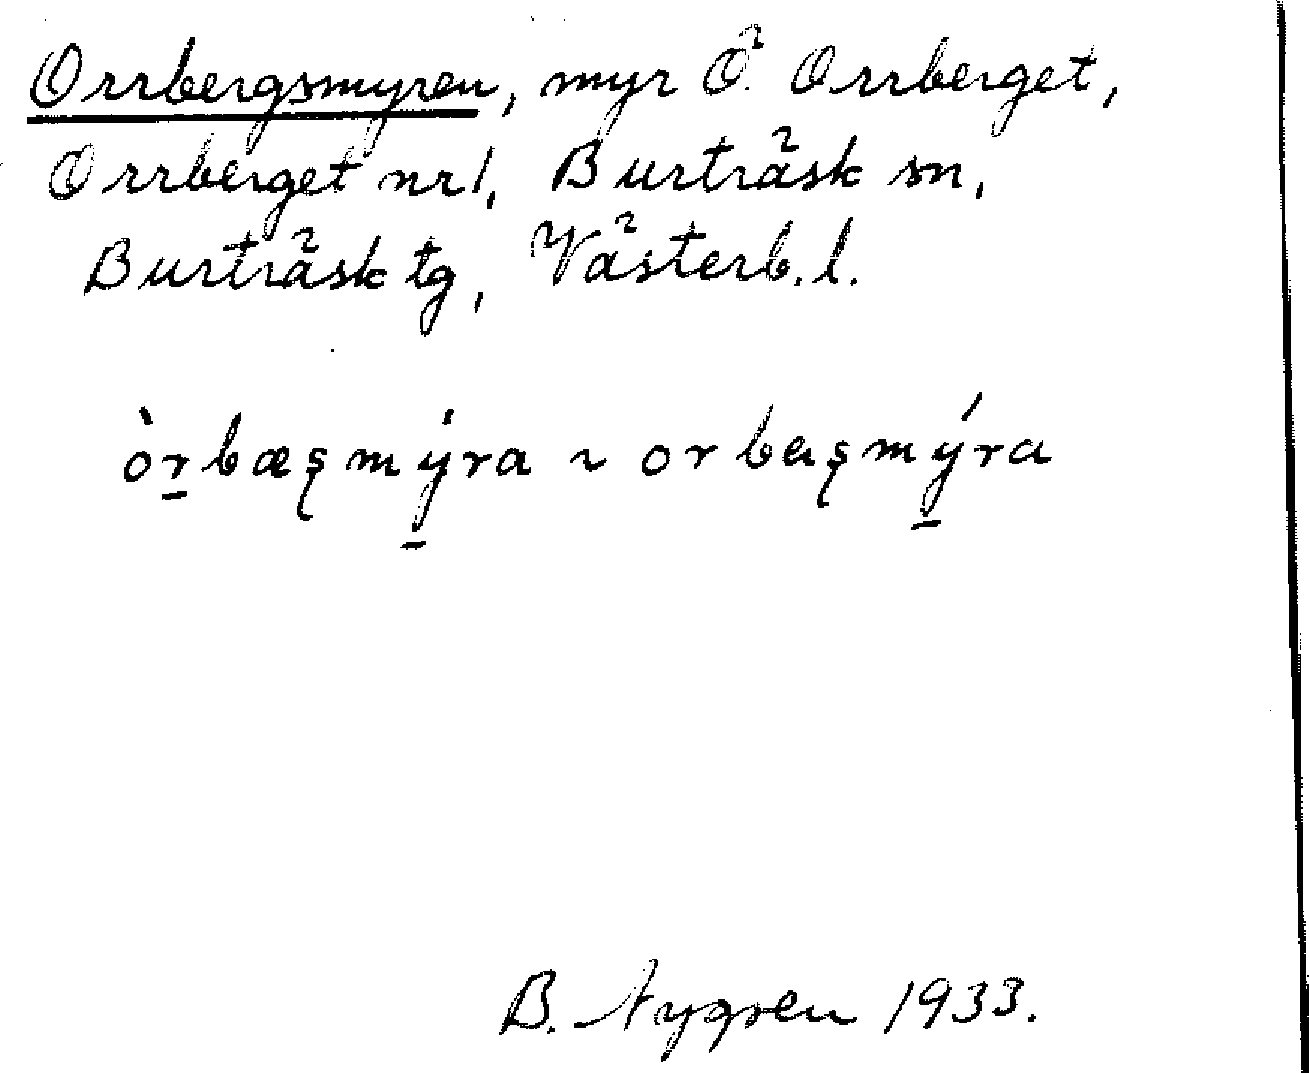 Orrbergsmyren, myr Ö. Orrberget,
Orrberget nr 1, Burträsk sn,
Burträsk tg, Västerb. l.
òr̠bæşmý̠ra ~ orbæşmý̠ra
B. Nygren 1933.